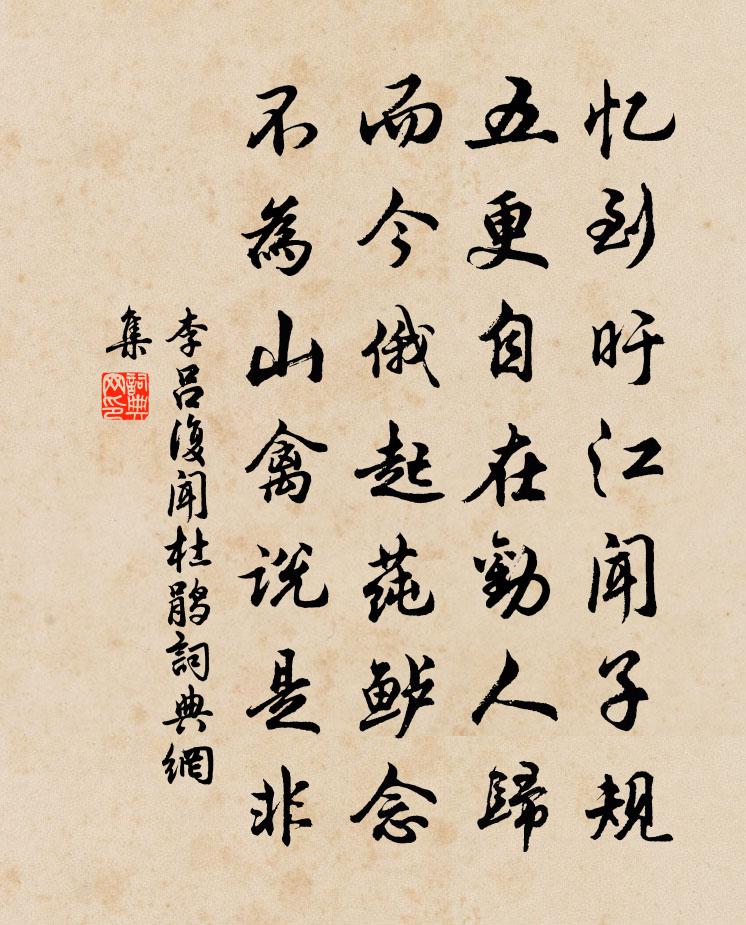 忆到旴江闻子规
五更自在勸人歸
而今俄起莼鲈念
不為山禽说是非
李吕復闻杜鹃詞典網
集
詞典
网印